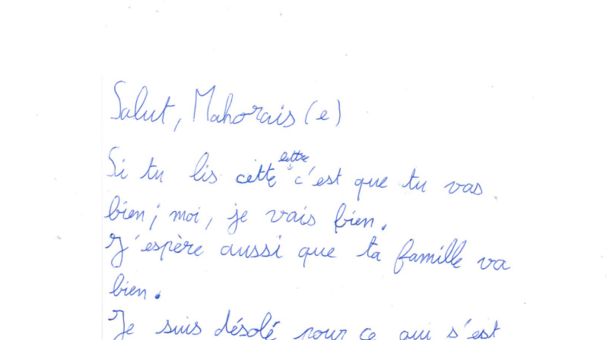 Salut, Mahorais(e)
Si tu lis cette lettre c'est que tu vas
bien; moi, je vais bien.
J'espère aussi que ta famille va
bien.
Je suis désolé pour ce qui s'est